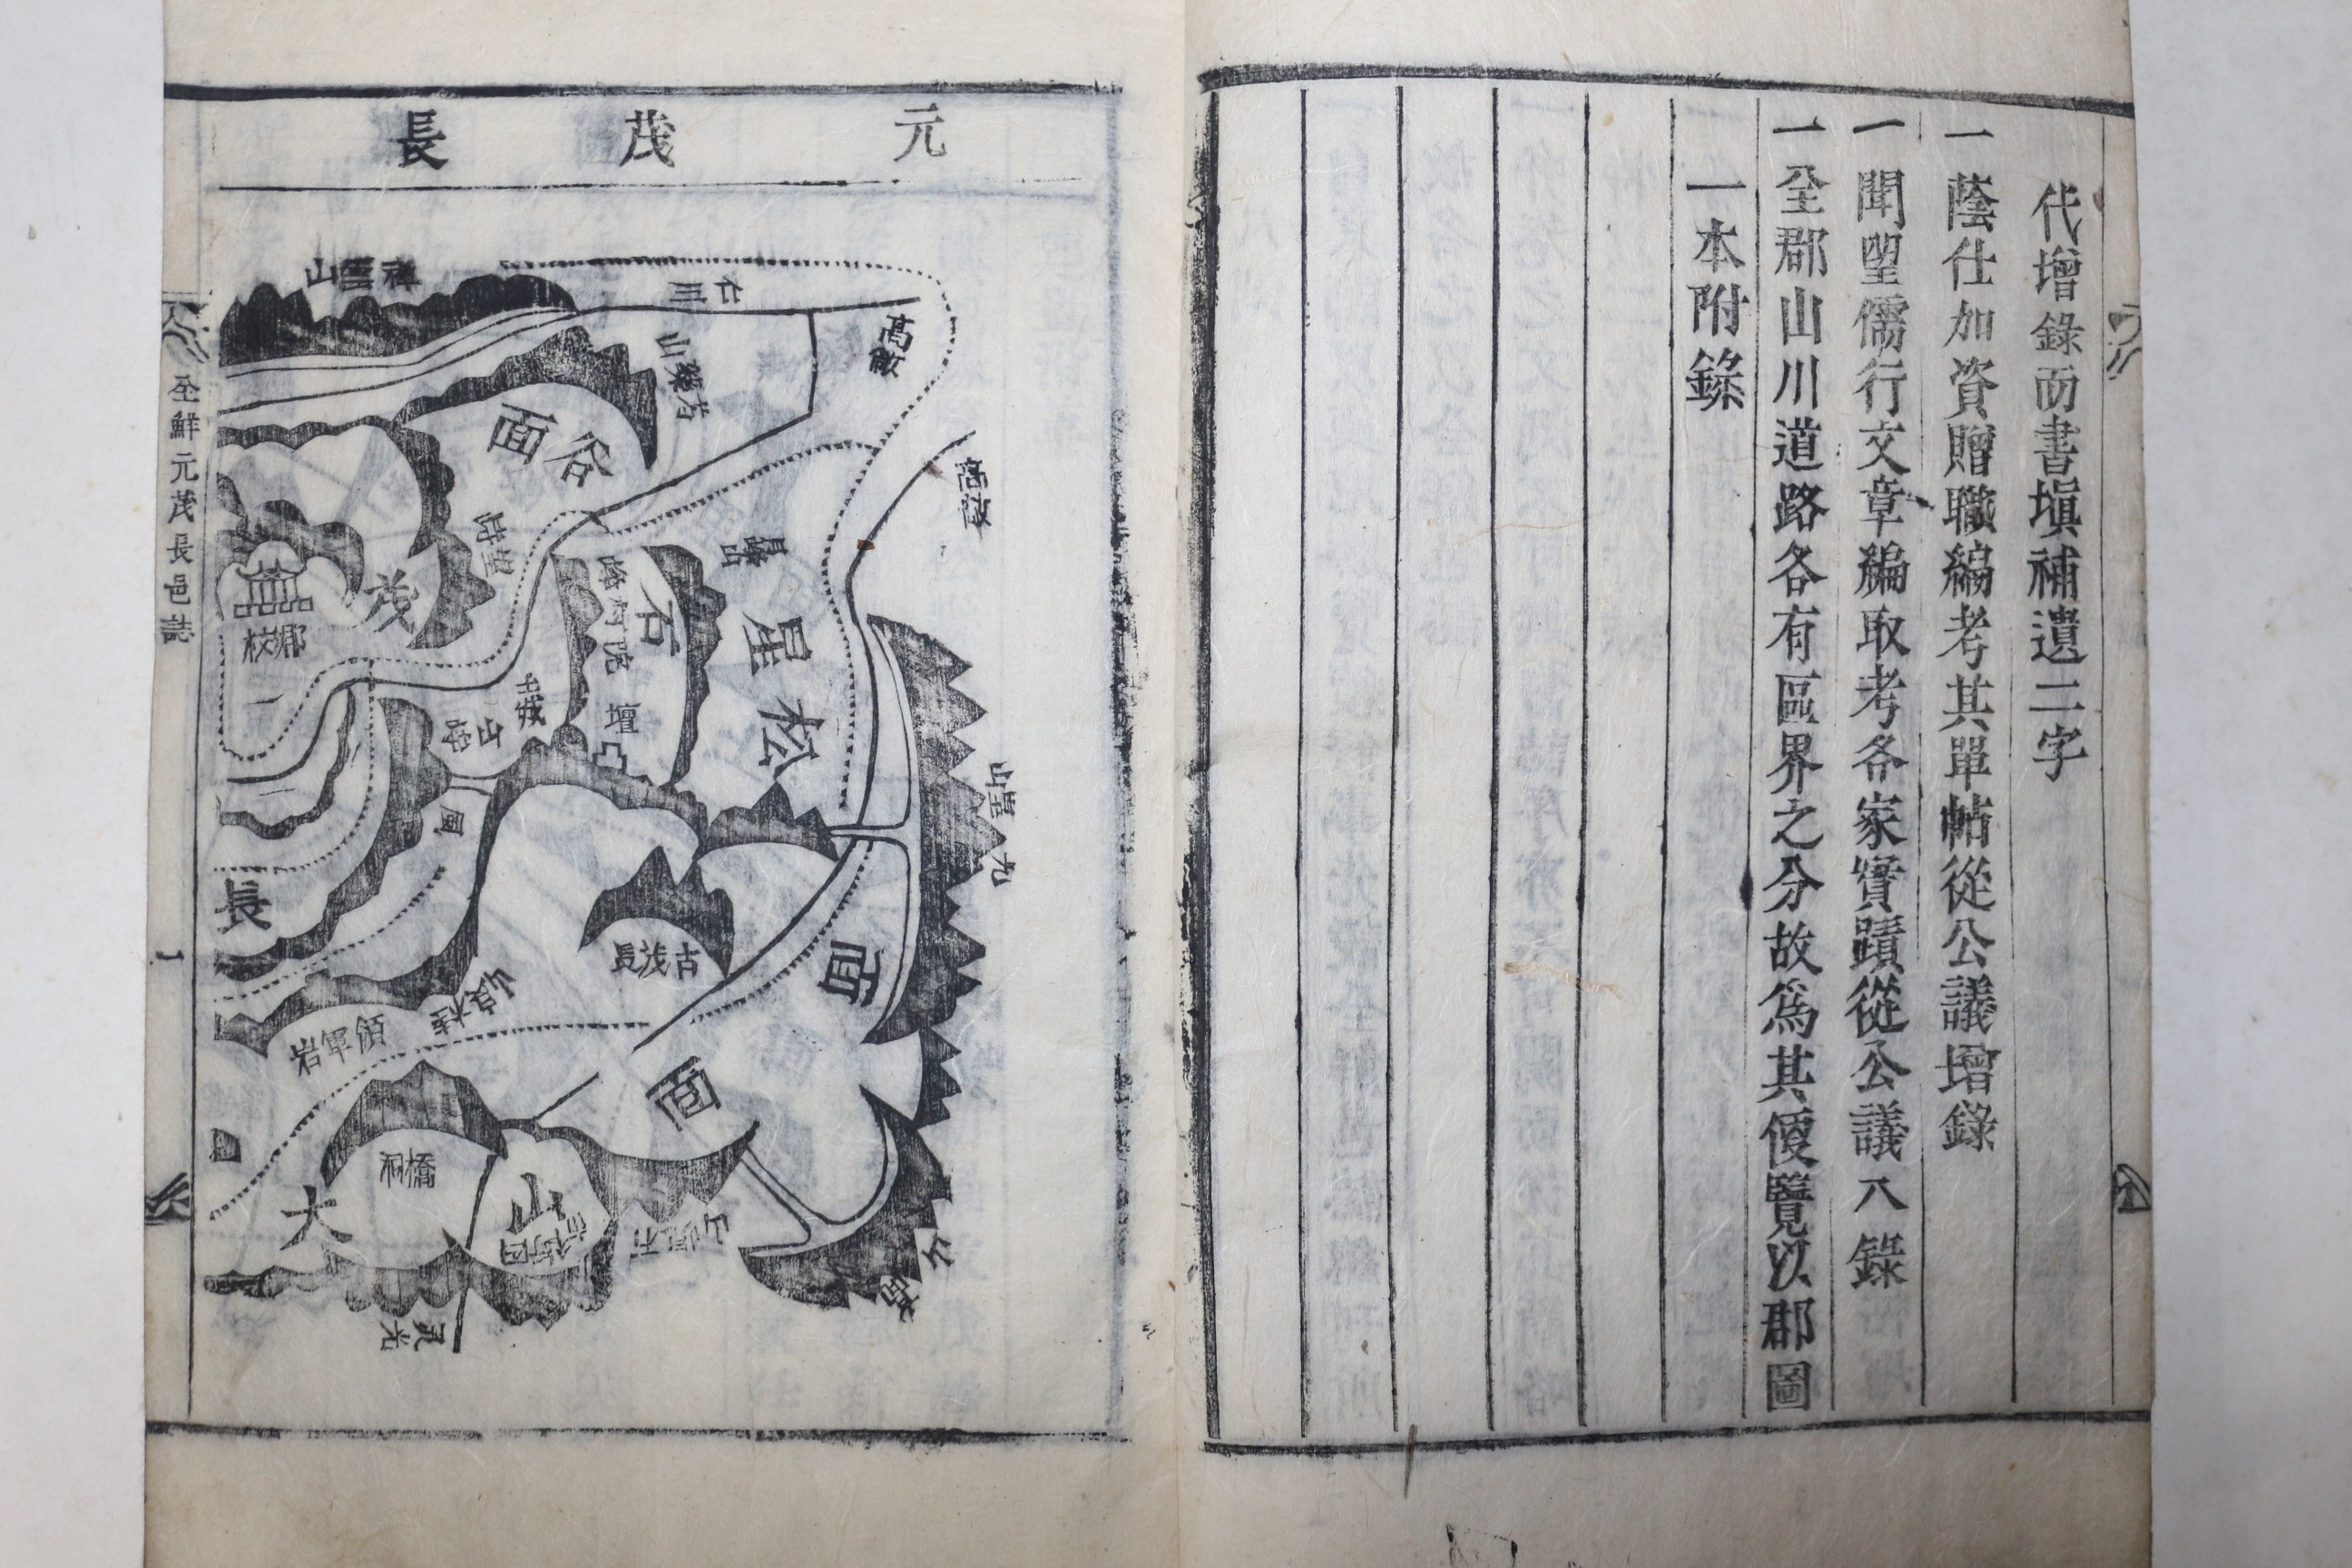 代增錄而書塡補遺二字
一蔭仕加資贈職編考其單帖從公議增錄
一聞望儒行文章編取考各家實蹟從公議入錄
一全郡山川道路各有區界之分故爲其便覽以郡圖
一本附錄
元茂長
禪雲山
仁川
高敞
山
谷面
石
星松
面
茂
鄕校
土城
壇
長
古茂長
面
橋洞
大
山
灵光
全鮮元茂長邑誌
一